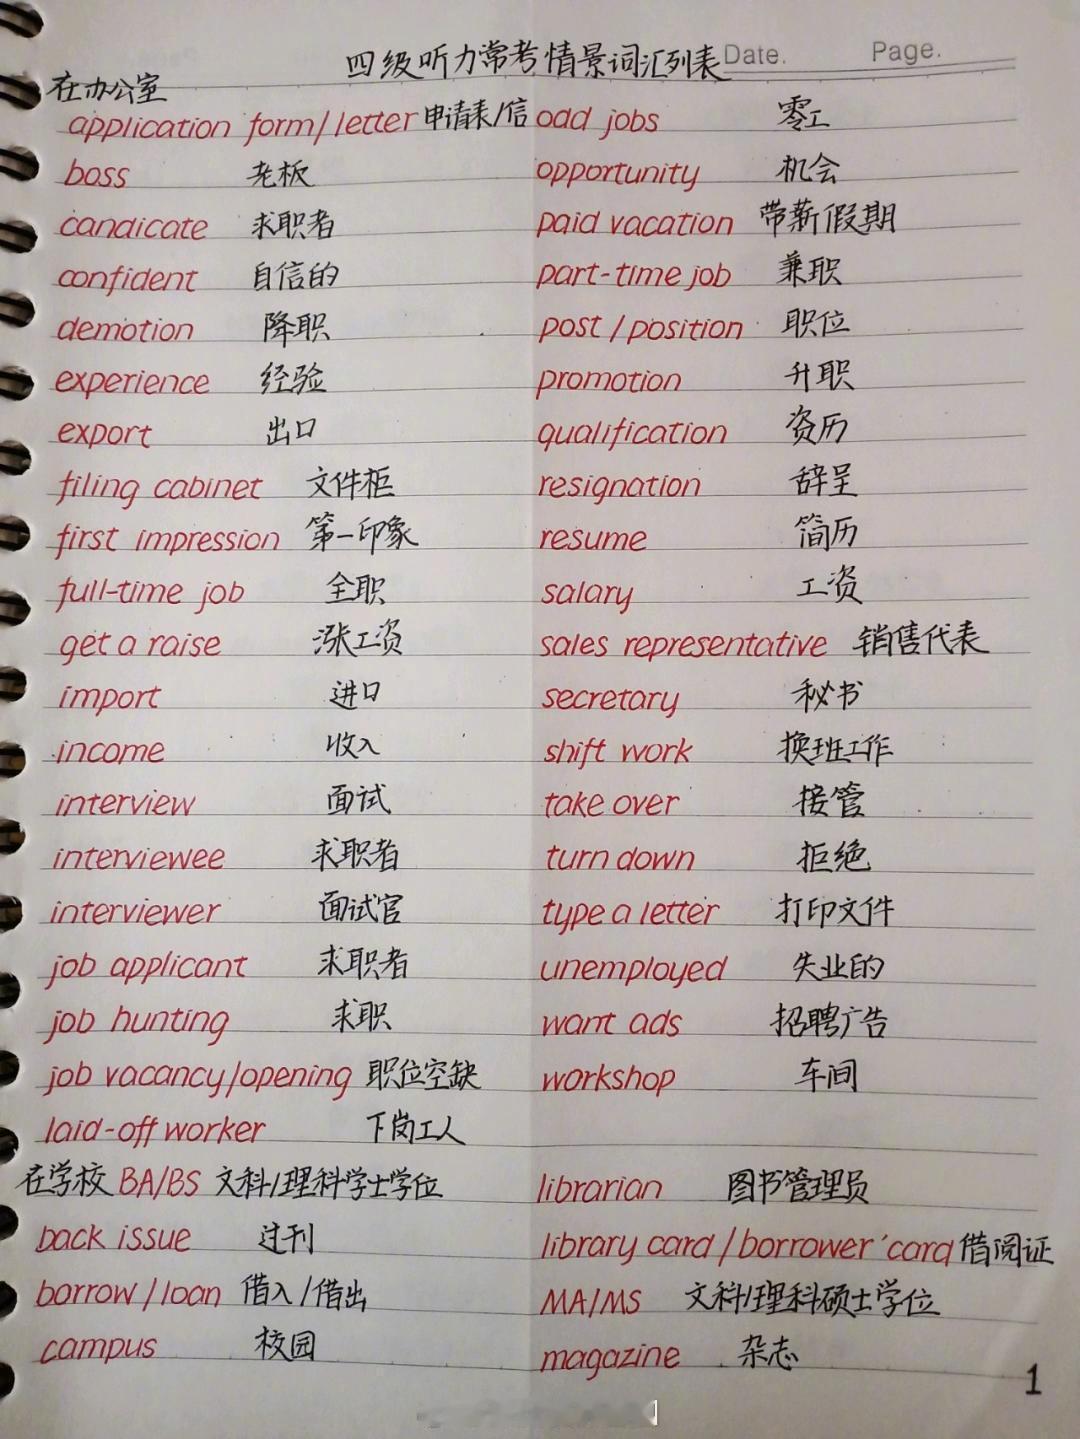 四级听力常考情景词汇列表 Date. Page.
在办公室
application form/letter 申请表/信
boss 老板
candicate 求职者
confident 自信的
demotion 降职
experience 经验
export 出口
filing cabinet 文件柜
first impression 第一印象
full-time job 全职
get a raise 涨工资
import 进口
income 收入
interview 面试
interviewee 求职者
interviewer 面试官
job applicant 求职者
job hunting 求职
job vacancy/opening 职位空缺
laid-off worker 下岗工人
odd jobs 零工
opportunity 机会
paid vacation 带薪假期
part-time job 兼职
post/position 职位
promotion 升职
qualification 资历
resignation 辞呈
resume 简历
salary 工资
sales representative 销售代表
secretary 秘书
shift work 换班工作
take over 接管
turn down 拒绝
type a letter 打印文件
unemployed 失业的
want ads 招聘广告
workshop 车间
在学校 BA/BS 文科/理科学士学位
back issue 过刊
borrow/loan 借入/借出
campus 校园
librarian 图书管理员
library card/borrower'card 借阅证
MA/MS 文科/理科硕士学位
magazine 杂志
1